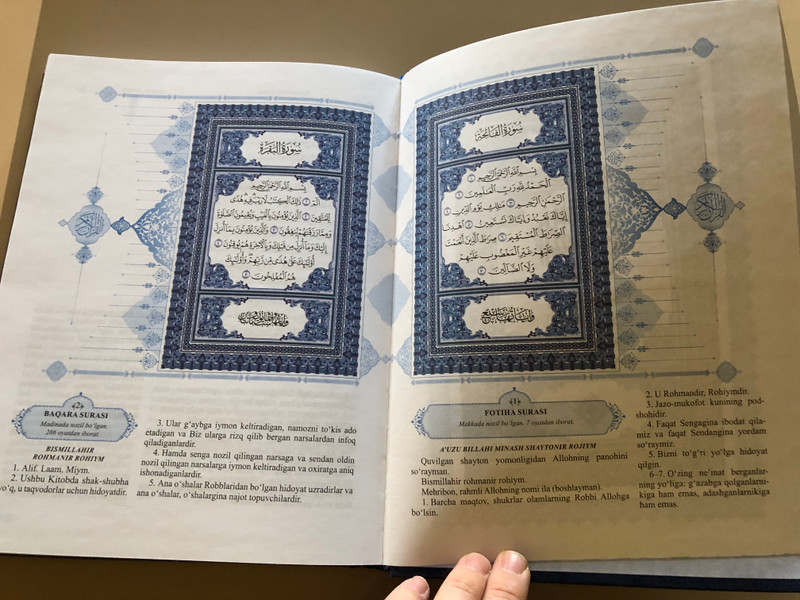 سُورَةُ الفَاتِحَةِ
بِسْمِ اللَّهِ الرَّحْمَٰنِ الرَّحِيمِ
الْحَمْدُ لِلَّهِ رَبِّ الْعَٰلَمِينَ
الرَّحْمَٰنِ الرَّحِيمِ مَٰلِكِ يَوْمِ الدِّينِ
إِيَّاكَ نَعْبُدُ وَإِيَّاكَ نَسْتَعِينُ اهْدِنَا
الصِّرَاطَ الْمُسْتَقِيمَ صِرَاطَ الَّذِينَ أَنْعَمْتَ
عَلَيْهِمْ غَيْرِ الْمَغْضُوبِ عَلَيْهِمْ
وَلَا الضَّالِّينَ
(1)
FOTIHA SURASI
Makkada nozil bo‘lgan. 7 oyatdan iborat.
A'UZU BILLAHI MINASH SHAYTONIR ROJIYM
Quvilgan shayton yomonligidan Allohning panohini
so‘rayman.
Bismillahir rohmanir rohiym.
Mehribon, rahmli Allohning nomi ila (boshlayman).
1. Barcha maqtov, shukrlar olamlarning Robbi Allohga
bo‘lsin.
2. U Rohmandir, Rohiymdir.
3. Jazo-mukofot kunining pod-
shohidir.
4. Faqat Sengagina ibodat qila-
miz va faqat Sendangina yordam
so‘raymiz.
5. Bizni to‘g‘ri yo‘lga hidoyat
qilgin.
6–7. O‘zing ne’mat berganlar-
ning yo‘liga: g‘azabga qolganlarni-
kiga ham emas, adashganlarnikiga
ham emas.
سُورَةُ البَقَرَةِ
بِسْمِ اللَّهِ الرَّحْمَٰنِ الرَّحِيمِ
الم ذَٰلِكَ الْكِتَٰبُ لَا رَيْبَ فِيهِ هُدًى
لِلْمُتَّقِينَ الَّذِينَ يُؤْمِنُونَ بِالْغَيْبِ وَيُقِيمُونَ الصَّلَوٰةَ
وَمِمَّا رَزَقْنَٰهُمْ يُنْفِقُونَ وَالَّذِينَ يُؤْمِنُونَ بِمَا أُنْزِلَ
إِلَيْكَ وَمَا أُنْزِلَ مِنْ قَبْلِكَ وَبِالْآخِرَةِ هُمْ يُوقِنُونَ
أُولَٰئِكَ عَلَىٰ هُدًى مِنْ رَبِّهِمْ وَأُولَٰئِكَ
هُمُ الْمُفْلِحُونَ
(2)
BAQARA SURASI
Madinada nozil bo‘lgan.
286 oyatdan iborat.
BISMILLAHIR
ROHMANIR ROHIYM
1. Alif. Laam. Miym.
2. Ushbu Kitobda shak-shubha
yo‘q, u taqvodorlar uchun hidoyatdir.
3. Ular g‘aybga iymon keltiradigan, namozni to‘kis ado
etadigan va Biz ularga rizq qilib bergan narsalardan infoq
qiladiganlardir.
4. Hamda senga nozil qilingan narsaga va sendan oldin
nozil qilingan narsalarga iymon keltiradigan va oxiratga aniq
ishonadiganlardir.
5. Ana o‘shalar Robblaridan bo‘lgan hidoyat uzradirlar va
ana o‘shalar, o‘shalargina najot topuvchilardir.